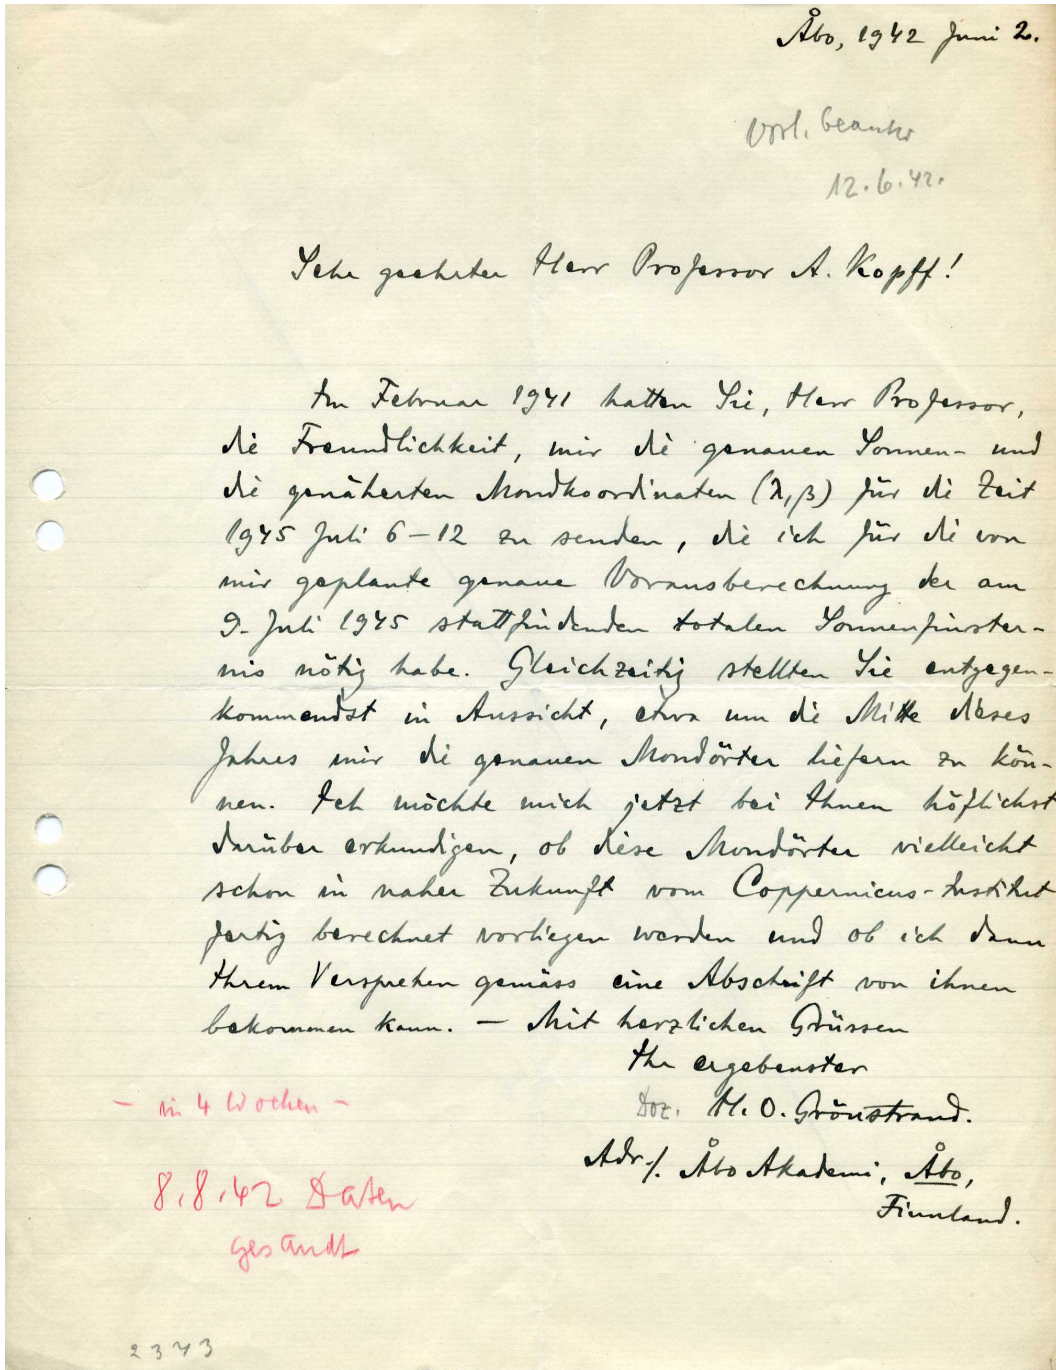 Åbo, 1942 Juni 2.
Vorl. beantw
12.6.42.
Sehr geehrter Herr Professor A. Kopff!
Im Februar 1941 hatten Sie, Herr Professor,
die Freundlichkeit, mir die genauen Sonnen- und
die genäherten Mondkoordinaten (λ, β) für die Zeit
1945 Juli 6–12 zu senden, die ich für die von
mir geplante genaue Vorausberechnung der am
9. Juli 1945 stattfindenden totalen Sonnenfinster-
nis nötig habe. Gleichzeitig stellten Sie entgegen-
kommendst in Aussicht, etwa um die Mitte dieses
Jahres mir die genauen Mondörter liefern zu kön-
nen. Ich möchte mich jetzt bei Ihnen höflichst
darüber erkundigen, ob diese Mondörter vielleicht
schon in naher Zukunft vom Coppernicus-Institut
fertig berechnet vorliegen werden und ob ich dann
Ihrem Versprechen gemäss eine Abschrift von ihnen
bekommen kann. — Mit herzlichen Grüssen
Ihr ergebenster
Doz. H. O. Grönstrand.
— in 4 Wochen —
Adr./. Åbo Akademi, Åbo,
Finnland.
8.8.42 Daten
gesandt
2373